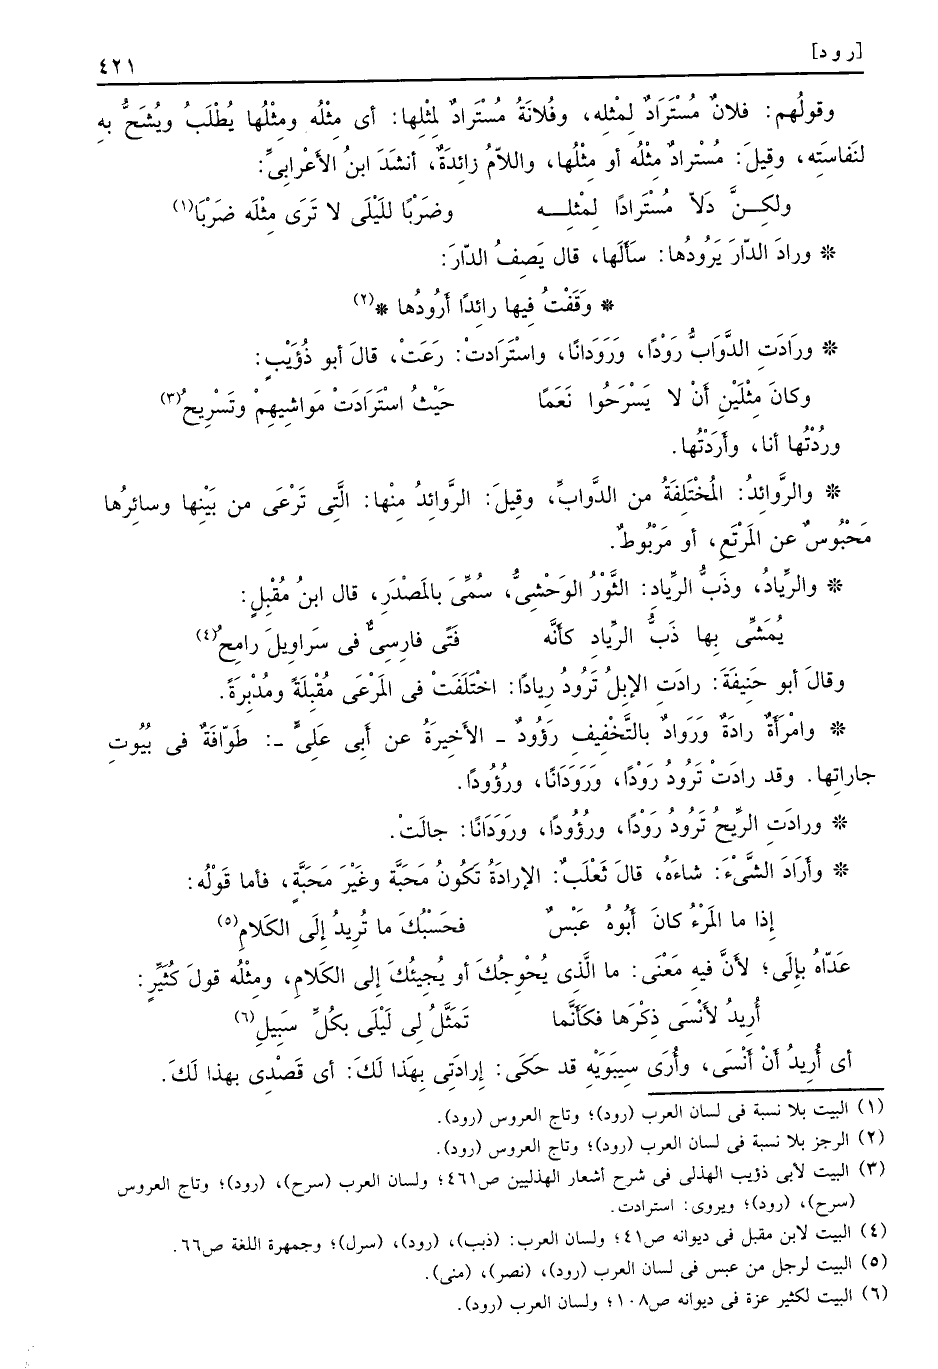 [رود] ٤٢١
وقولُهم: فلانٌ مُسْتَرَادٌ لِمْثلِه، وفُلانَةُ مُسْتَرادٌ لِمْثلِها: أى مِثْلُه ومثْلُها يُطْلَبُ ويُشَحُّ به
لنَفاسَتِه، وقيلَ: مُسْترادٌ مثْلُه أو مثْلُها، واللامُ زائدَةٌ، أنشدَ ابنُ الأعْرابىِّ:
ولكِـنَّ دَلاّ مُسْتَرادًا لمْثلِـه وضَرْبًا للَيْلَى لا تَرَى مثْلَه ضَرْبًا(١)
* ورادَ الدّارَ يَرُودُها: سَأَلَها، قال يَصفُ الدّارَ:
* وَقَفْتُ فيها رائدًا أَرُودُها *(٢)
* ورَادَت الدَّوَابُّ رَوْدًا، ورَوَدَانًا، واسْتَرادتْ: رَعَتْ، قالَ أبو ذُؤَيْبٍ:
وكانَ مِثْلَيْنِ أَنْ لا يَسْرَحُوا نَعَمًا حَيْثُ اسْتَرَادَتْ مَواشيهِمْ وتَسْرِيحُ(٣)
ورُدْتُها أنا، وأَرَدْتُها.
* والرَّوائدُ: المُخْتَلفَةُ من الدَّوابِّ، وقيلَ: الرَّوائدُ منْها: الَّتِى تَرْعَى من بَيْنِها وسائرُها
مَحْبُوسٌ عن المَرْتَعِ، أو مَرْبُوطٌ.
* والرِّيادُ، وذَبُّ الرِّياد: الثَّوْرُ الوَحْشىُّ، سُمِّىَ بالمَصْدَرِ، قال ابنُ مُقْبِلٍ:
يُمَشِّى بها ذَبُّ الرِّيادِ كأنَّه فَتًى فارِسىٌّ فى سَراوِيلَ رامِحُ(٤)
وقالَ أبو حَنِيفَةَ: رادَت الإبلُ تَرُودُ رِيادًا: اخْتَلَفَتْ فى المَرْعَى مُقْبِلَةً ومُدْبِرَةً.
* وامْرأةٌ رادَةٌ ورَوَادٌ بالتَّخْفيفِ رَؤُودٌ - الأخيرَةُ عن أبى علىٍّ -: طَوّافَةٌ فى بُيُوتِ
جاراتِها. وقد رادَتْ تَرُودُ رَوْدًا، ورَوَدَانًا، ورُؤُودًا.
* ورادَت الرِّيحُ تَرُودُ رَوْدًا، ورُؤُودًا، ورَوَدَانًا: جالَتْ.
* وأَرَادَ الشَّىْءَ: شاءَهُ، قالَ ثَعْلَبٌ: الإرادَةُ تَكُونُ مَحَبَّة وغَيْرَ مَحَبَّةٍ، فأما قَوْلُه:
إذا ما المَرْءُ كانَ أَبُوهُ عَبْسٌ فحَسْبُكَ ما تُرِيدُ إلَى الكَلامِ(٥)
عَدّاهُ بإلَى؛ لأنَّ فيه مَعْنَى: ما الَّذِى يُحْوِجُكَ أو يُجيئُكَ إلى الكَلامِ، ومثْلُه قولَ كُثَيِّرٍ:
أُرِيدُ لأَنْسَى ذِكْرَها فكَأَنَّما تَمَثَّلُ لِى لَيْلَى بكُلِّ سَبيلِ(٦)
أى أُرِيدُ أَنْ أَنْسَى، وأُرَى سِيبَوَيْهِ قد حَكَى: إرادَتِى بِهَذا لَكَ: أى قَصْدِى بهذا لَكَ.
(١) البيت بلا نسبة فى لسان العرب (رود)؛ وتاج العروس (رود).
(٢) الرجز بلا نسبة فى لسان العرب (رود)؛ وتاج العروس (رود).
(٣) البيت لأبى ذؤيب الهذلى فى شرح أشعار الهذليين ص٤٦١؛ ولسان العرب (سرح)، (رود)؛ وتاج العروس
(سرح)، (رود)؛ ويروى: استرادت.
(٤) البيت لابن مقبل فى ديوانه ص٤١؛ ولسان العرب: (ذبب)، (رود)، (سرل)؛ وجمهرة اللغة ص٦٦.
(٥) البيت لرجل من عبس فى لسان العرب (رود)، (نصر)، (منى).
(٦) البيت لكثير عزة فى ديوانه ص١٠٨؛ ولسان العرب (رود).